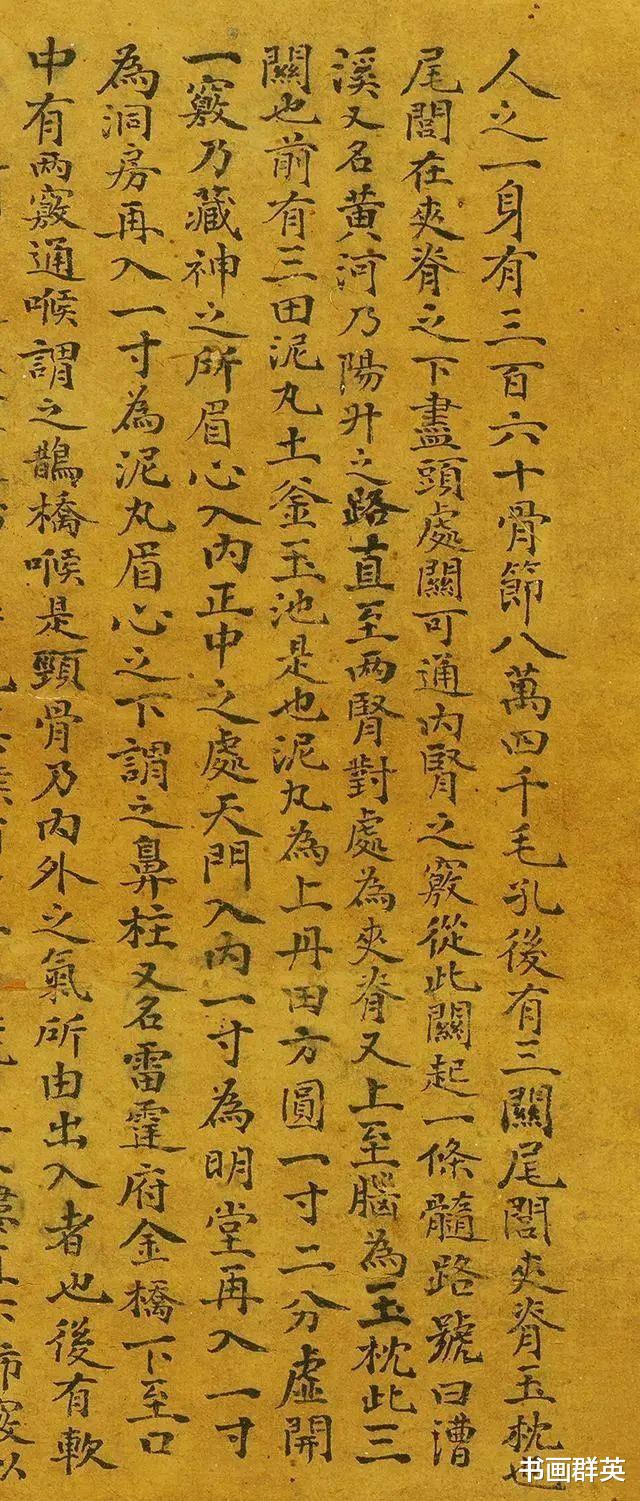 人之一身有三百六十骨節八萬四千毛孔後有三關尾閭夾脊玉枕也
尾閭在夾脊之下盡頭處關可通內腎之竅從此關起一條髓路號曰漕
溪又名黃河乃陽升之路直至两腎對處為夾脊又上至腦為玉枕此三
關也前有三田泥丸土釜玉池是也泥丸為上丹田方圓一寸二分虛開
一竅乃藏神之所眉心入內正中之處天門入內一寸為明堂再入一寸
為洞房再入一寸為泥丸眉心之下謂之鼻柱又名雷霆府金橋下至口
中有两竅通喉謂之鵲橋喉是頸骨乃內外之氣所由出入者也後有軟
书画群英